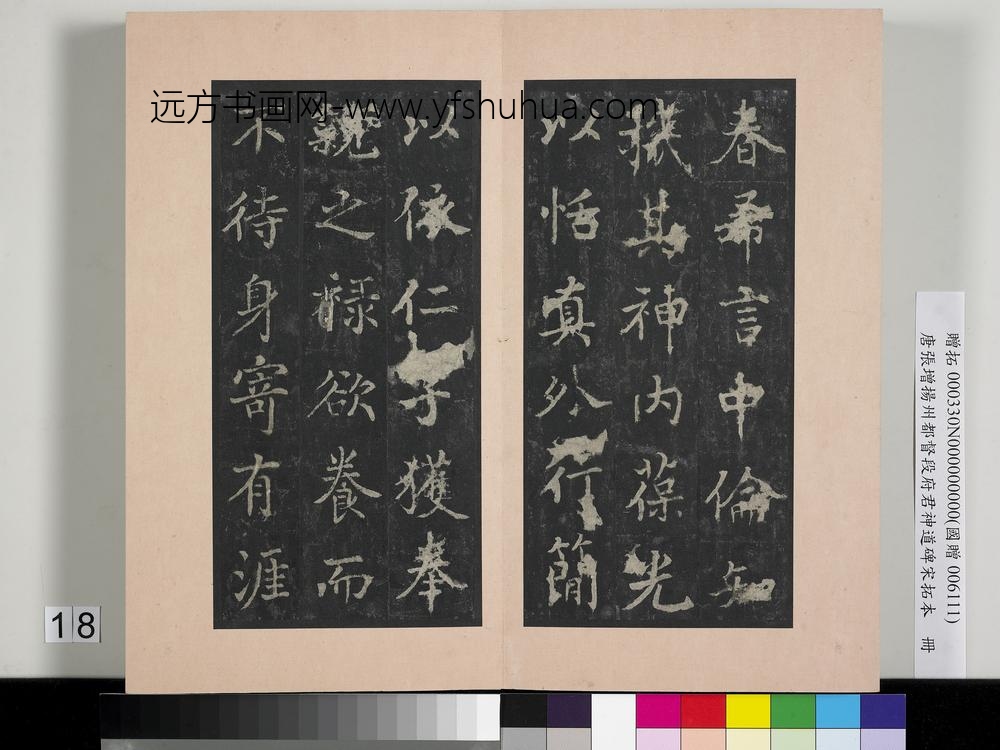 远方书画网-www.yfshuhua.com
春希言中倫知
其神內葆光
以恬真外行簡
以依仁子獲奉
親之祿欲養而
不待身寄有涯
贈拓 000330N000000000(國贈 006111)
唐張增揚州都督段府君神道碑宋拓本 冊
18